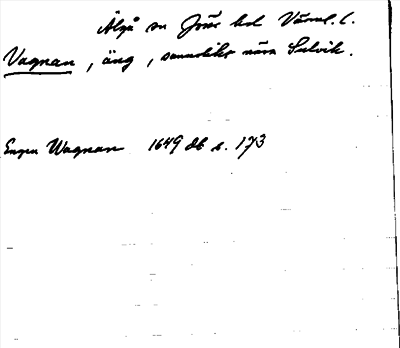 Älgå sn Jöse hd Värml. l.
Vagnan, äng, sannolikt nära Sulvik.
Engen Wagnan 1649 db s. 173